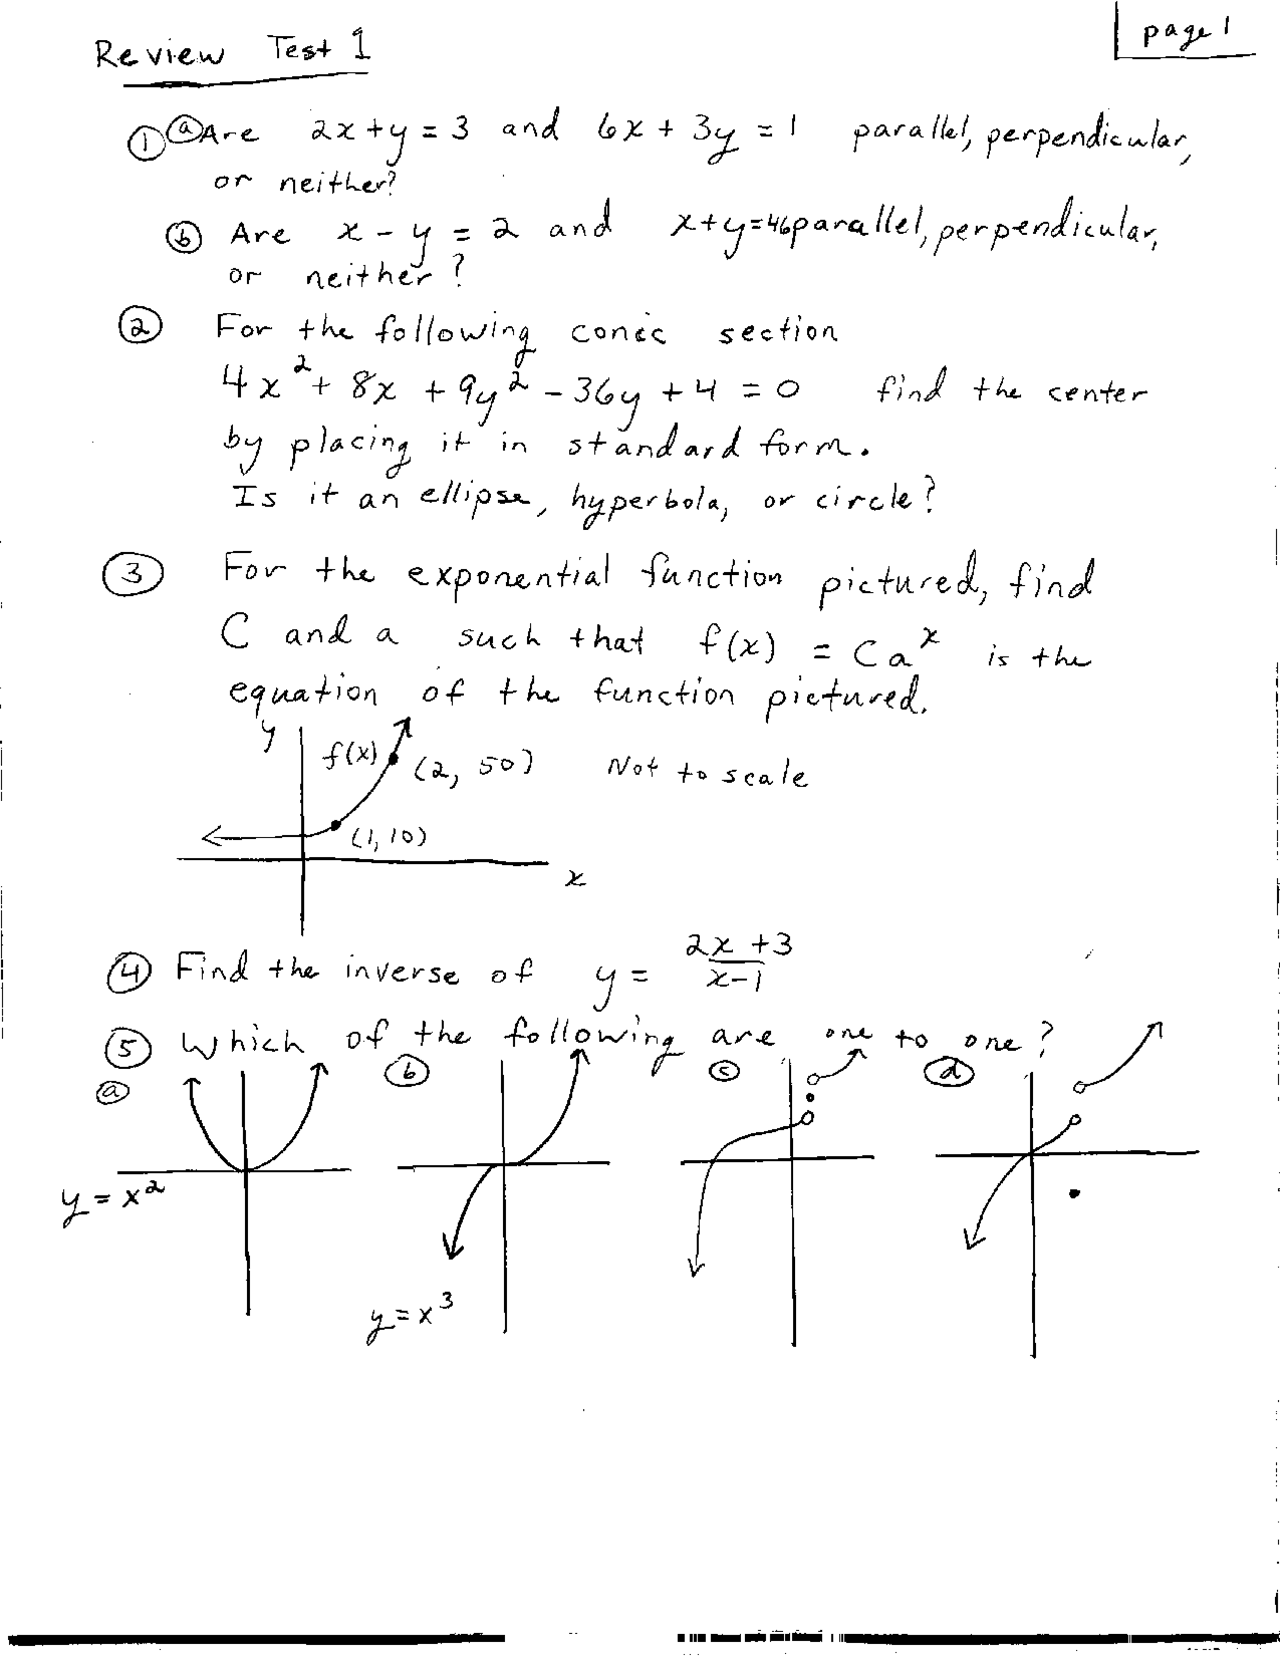 Review Test 1
page 1
① ⓐ Are 2x+y = 3 and 6x + 3y = 1 parallel, perpendicular,
or neither?
ⓑ Are x - y = 2 and x+y=46 parallel, perpendicular,
or neither?
② For the following conic section
4x² + 8x + 9y² - 36y + 4 = 0 find the center
by placing it in standard form.
Is it an ellipse, hyperbola, or circle?
③ For the exponential function pictured, find
C and a such that f(x) = Ca^x is the
equation of the function pictured.
y
f(x)
(2, 50)
Not to scale
(1, 10)
x
④ Find the inverse of y = (2x+3)/(x-1)
⑤ Which of the following are one to one?
ⓐ
ⓑ
ⓒ
ⓓ
y = x²
y = x³